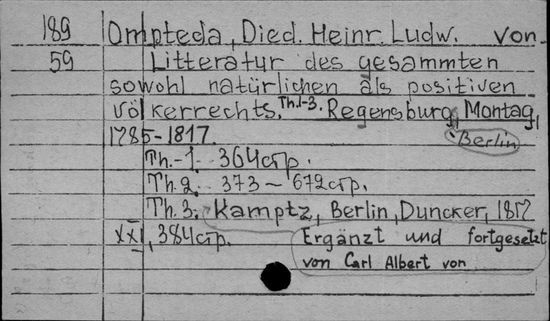 189 Ompteda, Died. Heinr. Ludw. von
59 Litteratur des gesammten
sowohl natürlichen als positiven
völkerrechts. Th. 1-3. Regensburg, Montag,
1785-1817. Berlin
Th.-1. 364стр.
Th. 2. 373-672стр.
Th. 3. Kamptz, Berlin, Duncker, 1817
XXI, 384стр. Ergänzt und fortgesetzt
von Carl Albert von